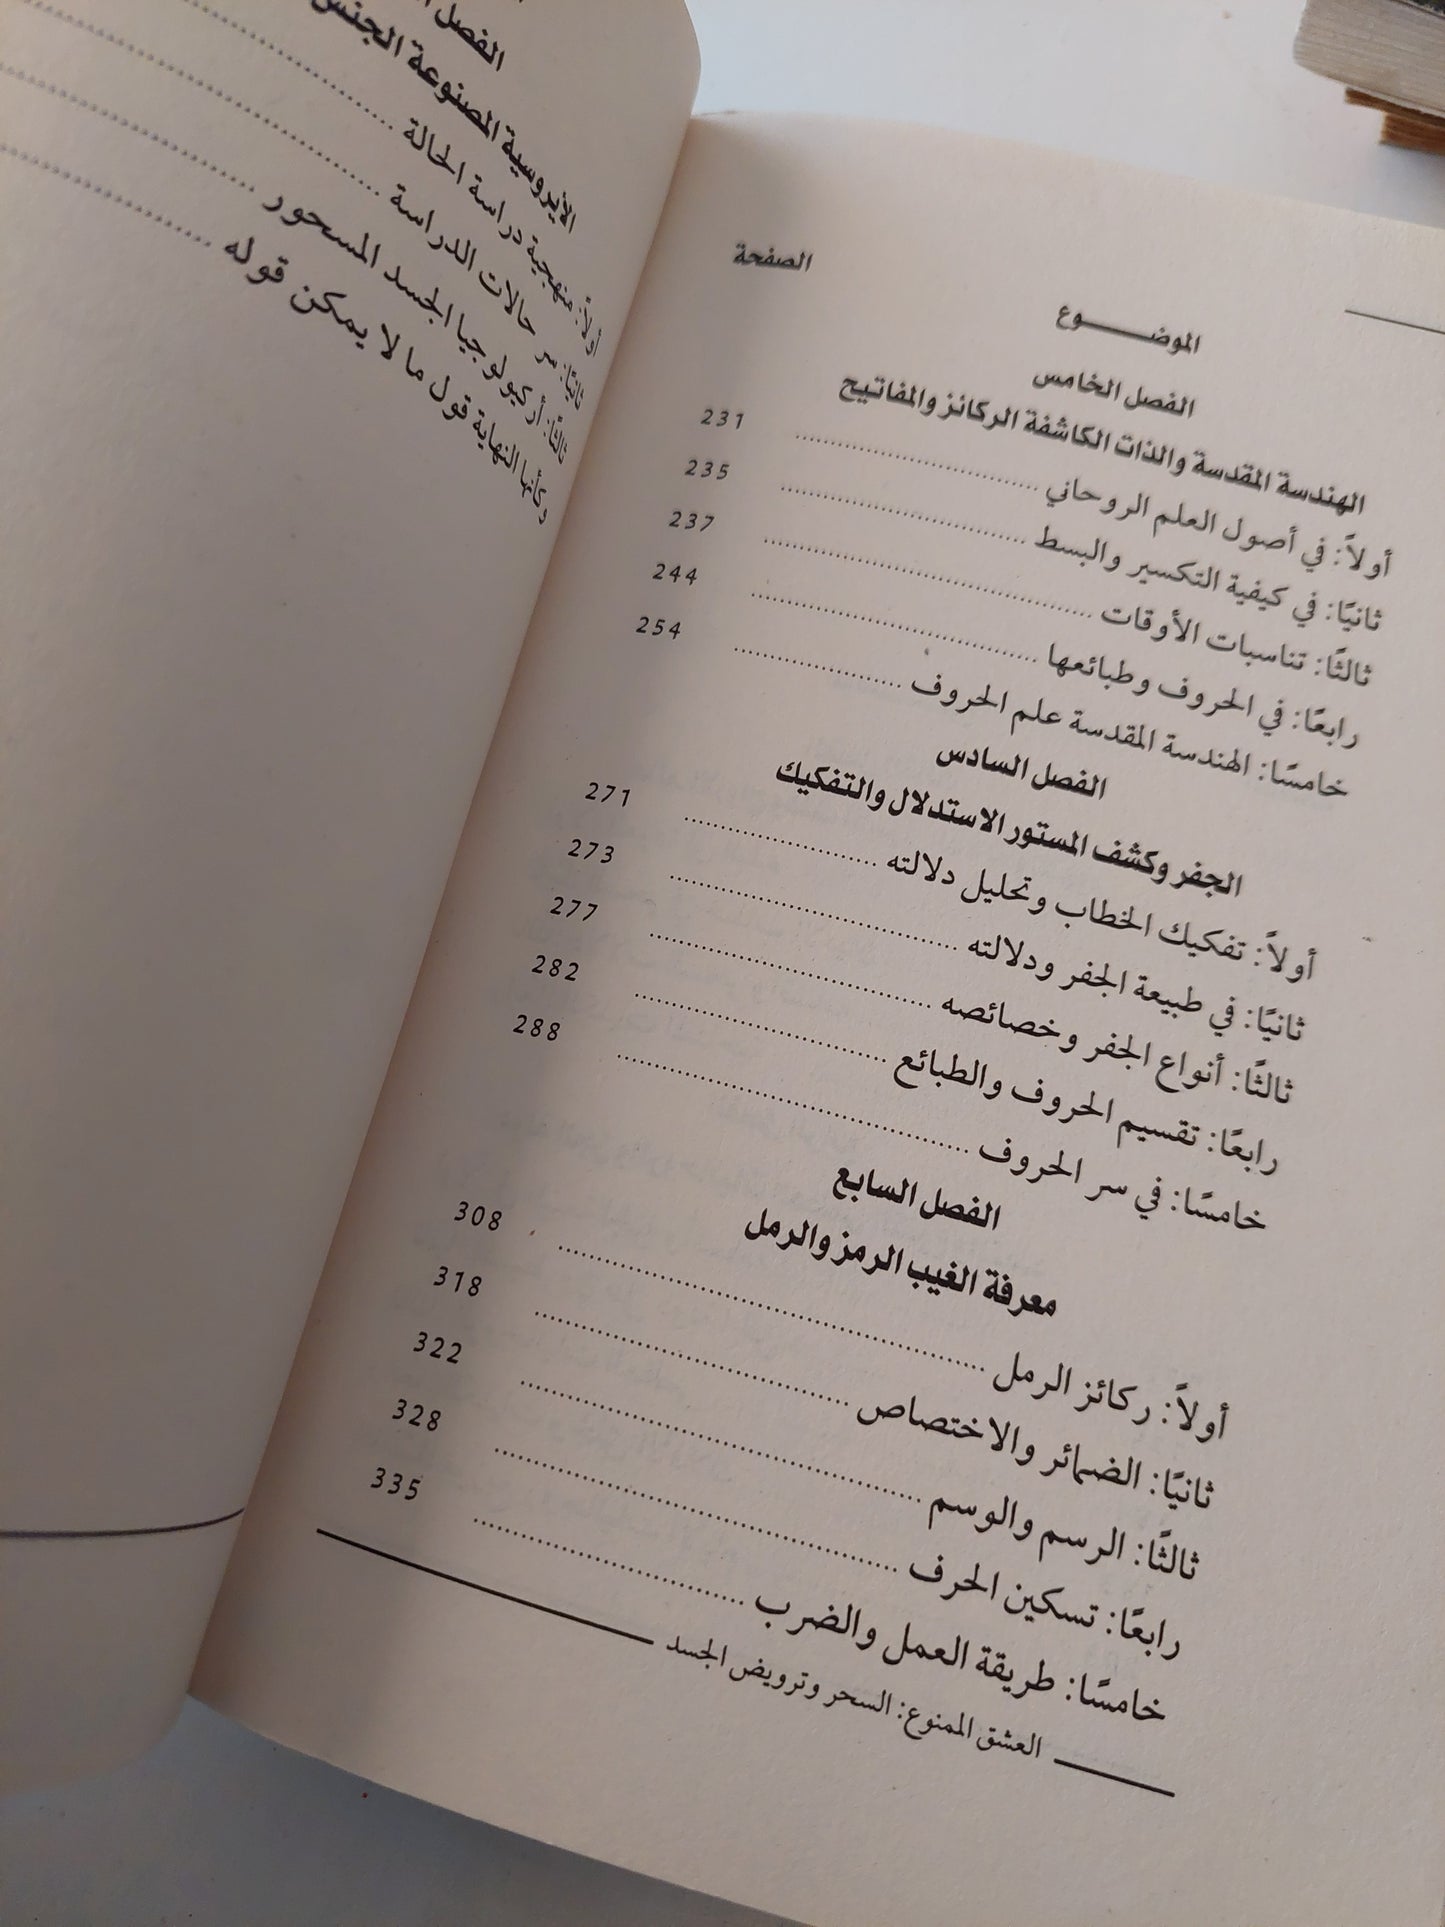 الموضــــــوع الصفحة
الفصل الخامس
الهندسة المقدسة والذات الكاشفة الركائز والمفاتيح
أولاً: في أصول العلم الروحاني ........................ 231
ثانيًا: في كيفية التكسير والبسط ........................ 235
ثالثًا: تناسبات الأوقات ........................ 237
رابعًا: في الحروف وطبائعها ........................ 244
خامسًا: الهندسة المقدسة علم الحروف ........................ 254
الفصل السادس
الجفر وكشف المستور الاستدلال والتفكيك
أولاً: تفكيك الخطاب وتحليل دلالته ........................ 271
ثانيًا: في طبيعة الجفر ودلالته ........................ 273
ثالثًا: أنواع الجفر وخصائصه ........................ 277
رابعًا: تقسيم الحروف والطبائع ........................ 282
خامسًا: في سر الحروف ........................ 288
الفصل السابع
معرفة الغيب الرمز والرمل
أولاً: ركائز الرمل ........................ 308
ثانيًا: الضمائر والاختصاص ........................ 318
ثالثًا: الرسم والوسم ........................ 322
رابعًا: تسكين الحرف ........................ 328
خامسًا: طريقة العمل والضرب ........................ 335
العشق الممنوع: السحر وترويض الجسد
الفصل
الأيروسية المصنوعة الجنس
أولاً: منهجية دراسة الحالة ........................
ثانيًا: سر حالات الدراسة ........................
ثالثًا: أركيولوجيا الجسد المسحور ........................
وكأنها النهاية قول ما لا يمكن قوله ........................